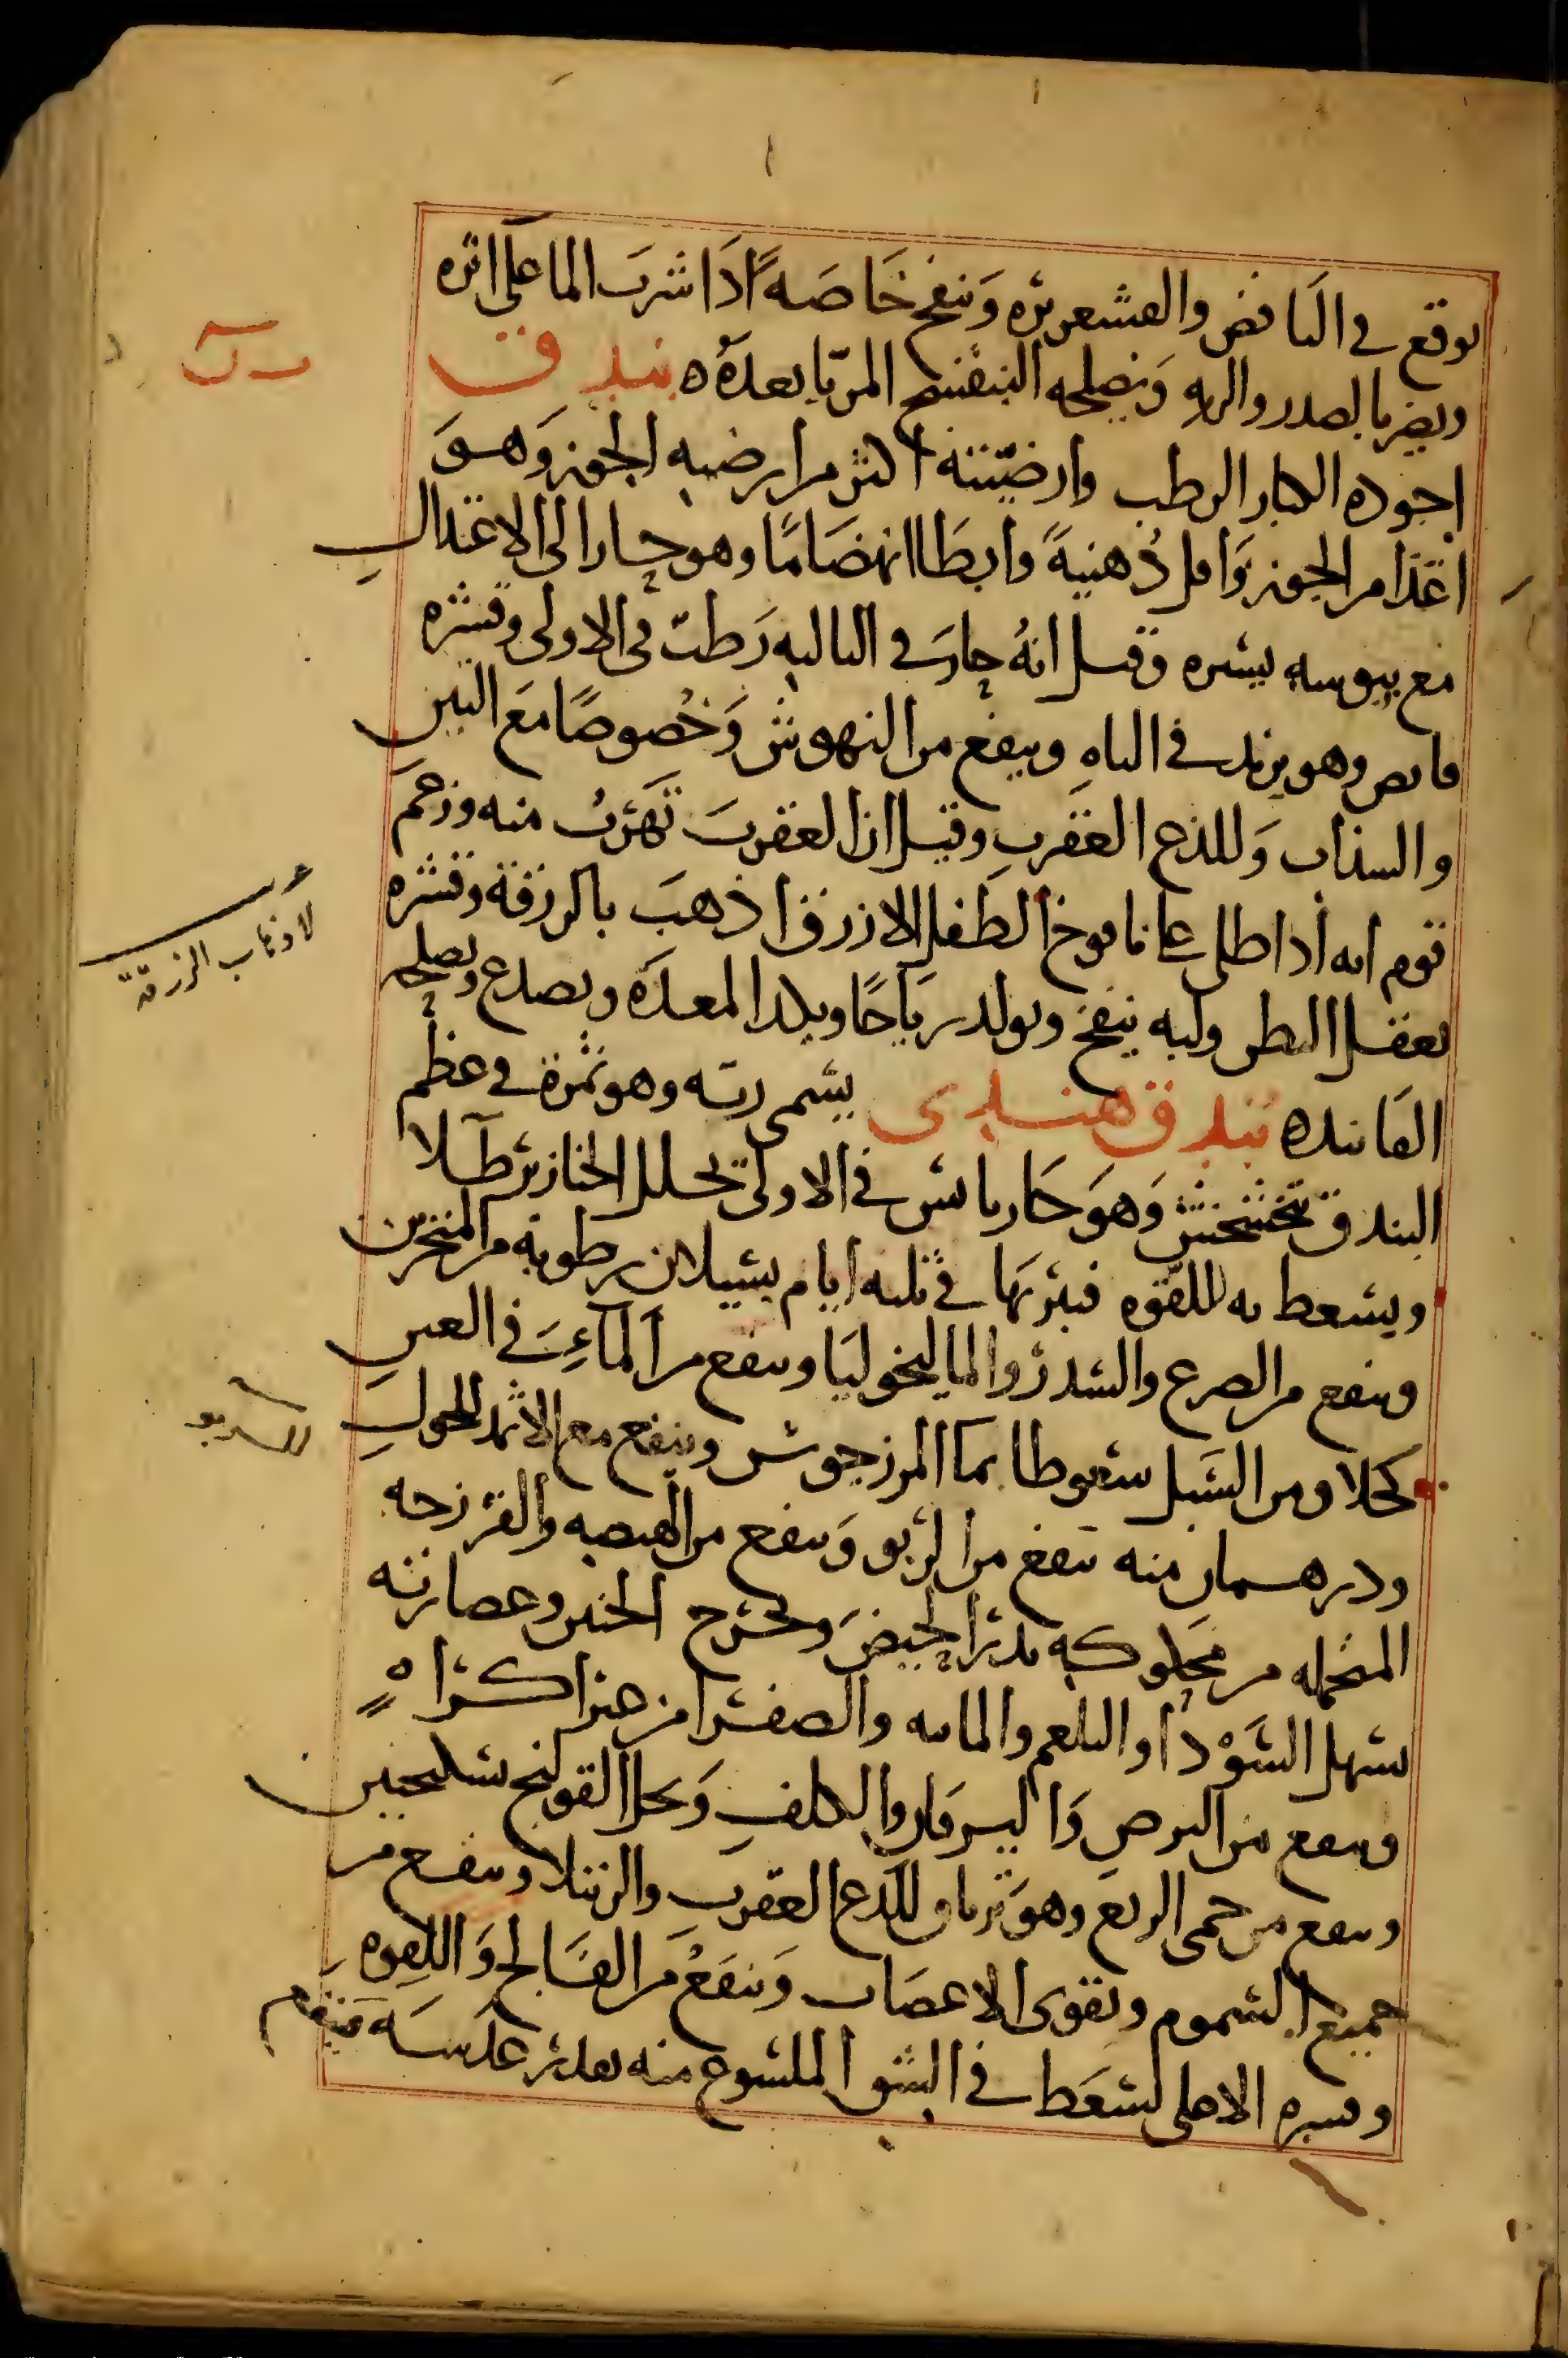 يوقع في النافض والقشعريره وينفخ خَاصَهً اذَا شرب الما على اثره
ويضر بالصدر والريه ويصلحه البنفسج المربّا بعدَهُ ه بندق
اجوده الكبار الرطب وارضيّته اكثر من ارضيه الجوز وَهوَ
اغذا من الجوز وَاقل دُهنيةً وابطَا انهضَامًا وهو حار الى الاعتدالِ
مع يبوسه يسيره وقيل انهُ حار في الثالثه رَطب في الاولى وقشره
قابض وهو يزيد في الباهِ وينفع من النهوش وَخُصوصًا مَع التين
والسذاب وَللذع العَقربِ وقيل ان العقربَ تَهرُبُ منه وزعمَ
قوم انه اذا طلى على نافوخ الطفل الازرق اذهبَ بالزرقة وقشره
يعقل البطن ولبه ينفخ ويولد رياحًا ويلذ المعدَه ويصدع ويصلحه
الفانيده بُندق هندى يسمى رته وهو ثمرة في عظم
البندق تتخشخش وَهوَ حَار يابس في الاولى يحلل الخنازير طلا
ويسعط به للقوه فيبريهَا في ثلثه ايام بسيلان رطوبه من المنخرين
وينفع من الصرع والسدر والماليخوليَا وينفع من المآءِ في العينِ
كحلا ومن السَبل سعوطا بما المرزجوش وينفع مع الاثمد للحولِ
ودرهمان منه ينفع من الربو وَينفع من الهيضه والفرزجه
المتحمله من محلوكه يدر الحيضَ ويخرج الجنين وعصارته
يسهل السَوْدَا والبلغم والماييه والصفرا من غير اكراهٍ
وينفع من البرصِ وَاليرقان والكلفِ وَيحل القولنج بسكنجبين
وينفع من حمى الربع وهو ترياق للذع العقربِ والرتيلا وينفع من
جميع السموم ويقوى الاعصاب وَينفعُ من الفَالج وَاللقوه
وقشره الاعلى يسعَط في الشق الملسوع منه بقدر عدسَه فينفع
لاذهاب الزرقة
للربو